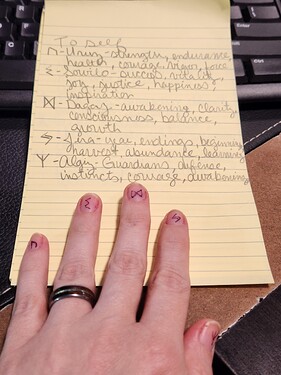 To self
ᚢ-Uruz-strength, endurance,
health, courage, vigor, force
ᛊ-Sowilo-success, vitality,
joy, justice, happiness,
inspiration
ᛞ-Dagaz-awakening, clarity,
consciousness, balance,
growth
ᛃ-Jira-year, endings, beginning,
harvest, abundance, learning
ᛉ-Algiz-Guardians, defence,
instincts, courage, awakening
ᚢ ᛊ ᛞ ᛃ